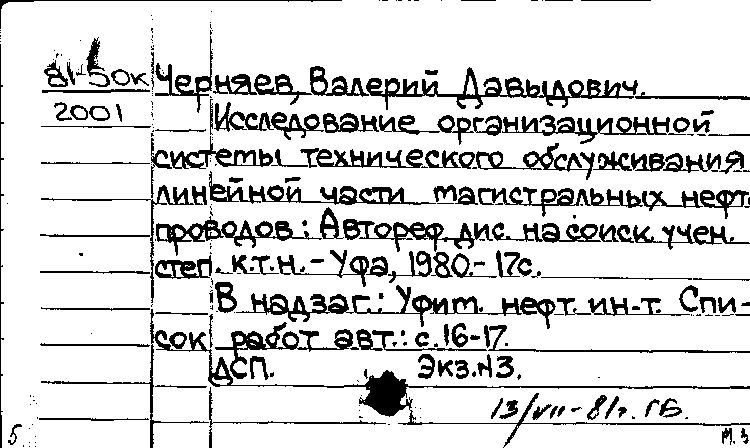 81-50к Черняев, Валерий Давыдович.
2001 Исследование организационной
системы технического обслуживания
линейной части магистральных нефте
проводов: Автореф. дис. на соиск. учен.
степ. к.т.н. - Уфа, 1980. - 17с.
В надзаг.: Уфим. нефт. ин-т. Спи-
сок работ авт.: с. 16-17.
ДСП. Экз. №3.
13/VII-81г. ГБ.
5 М. 3